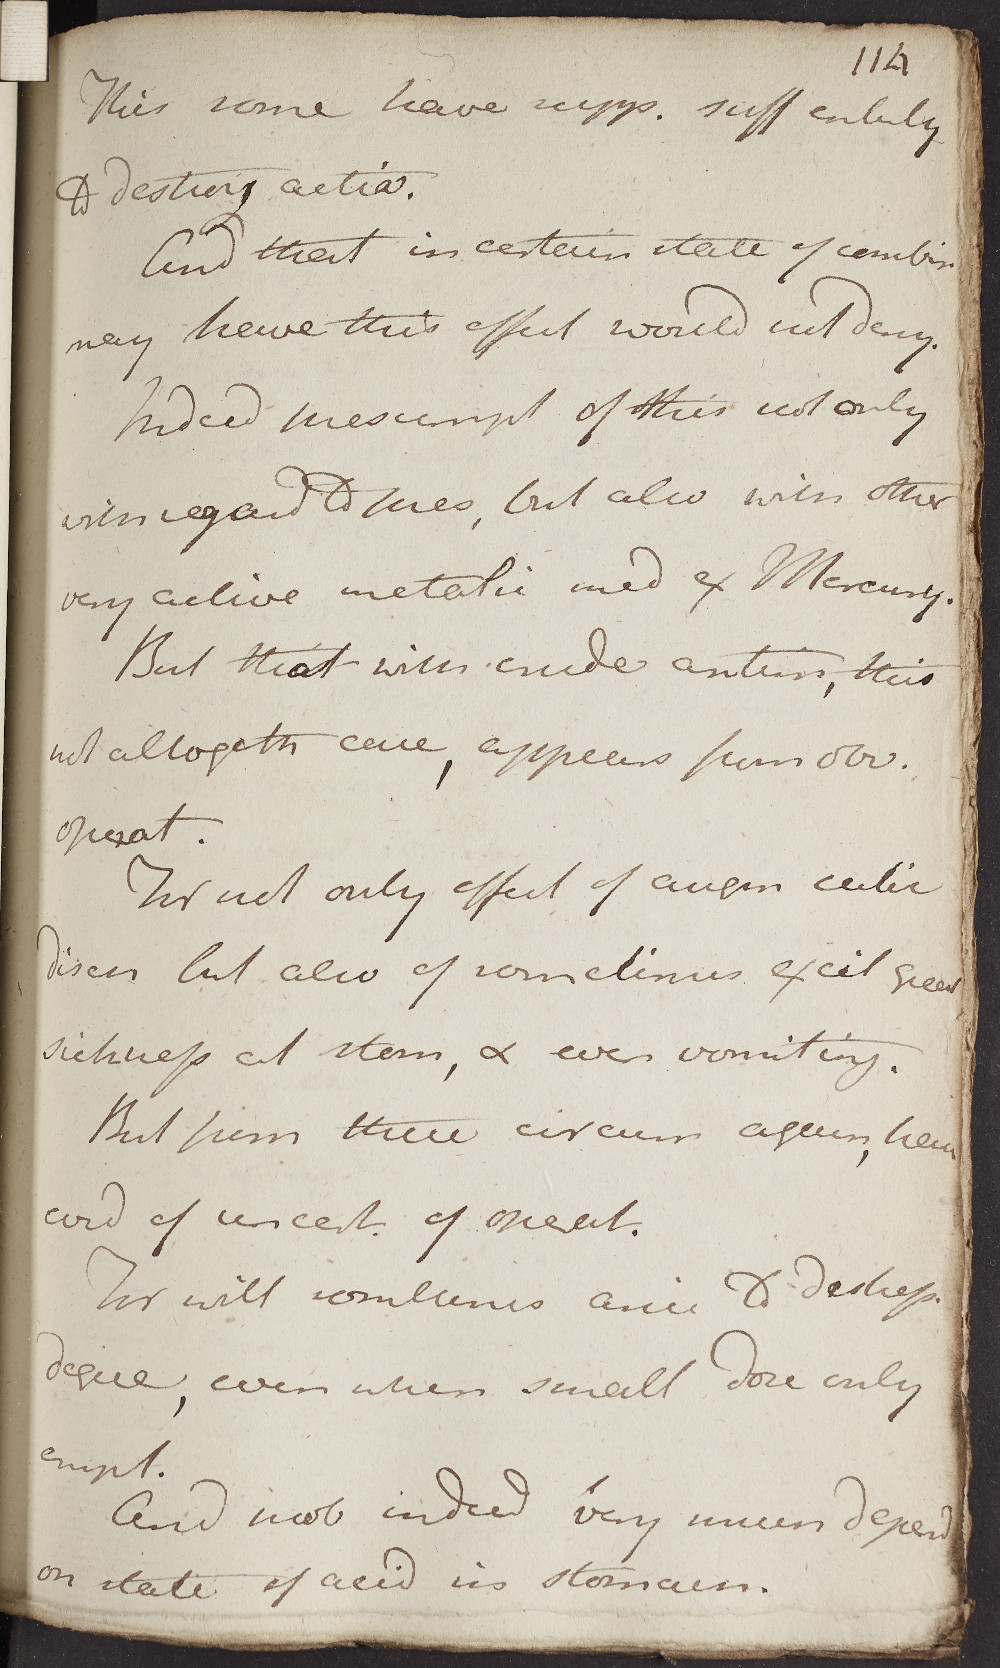 114
This some have supp. suff entirely
to destroy actio.
And that in certain state of combin
may have this effect would not deny.
Indeed presumpt of this not only
with regard to pres, but also with other
very active metalic med ex Mercury.
But that with crude antim, this
not altogeth case, appears from obv.
operat.
For not only effect of augm cutic
disch but also of sometimes excit great
sickness at stom, & even vomiting.
But from these circum again, hew
cord of uncert. of operat.
For will sometimes arise to distress.
degree, even when small dose only
empl.
And prob indeed very much depend
on state of acid in stomach.